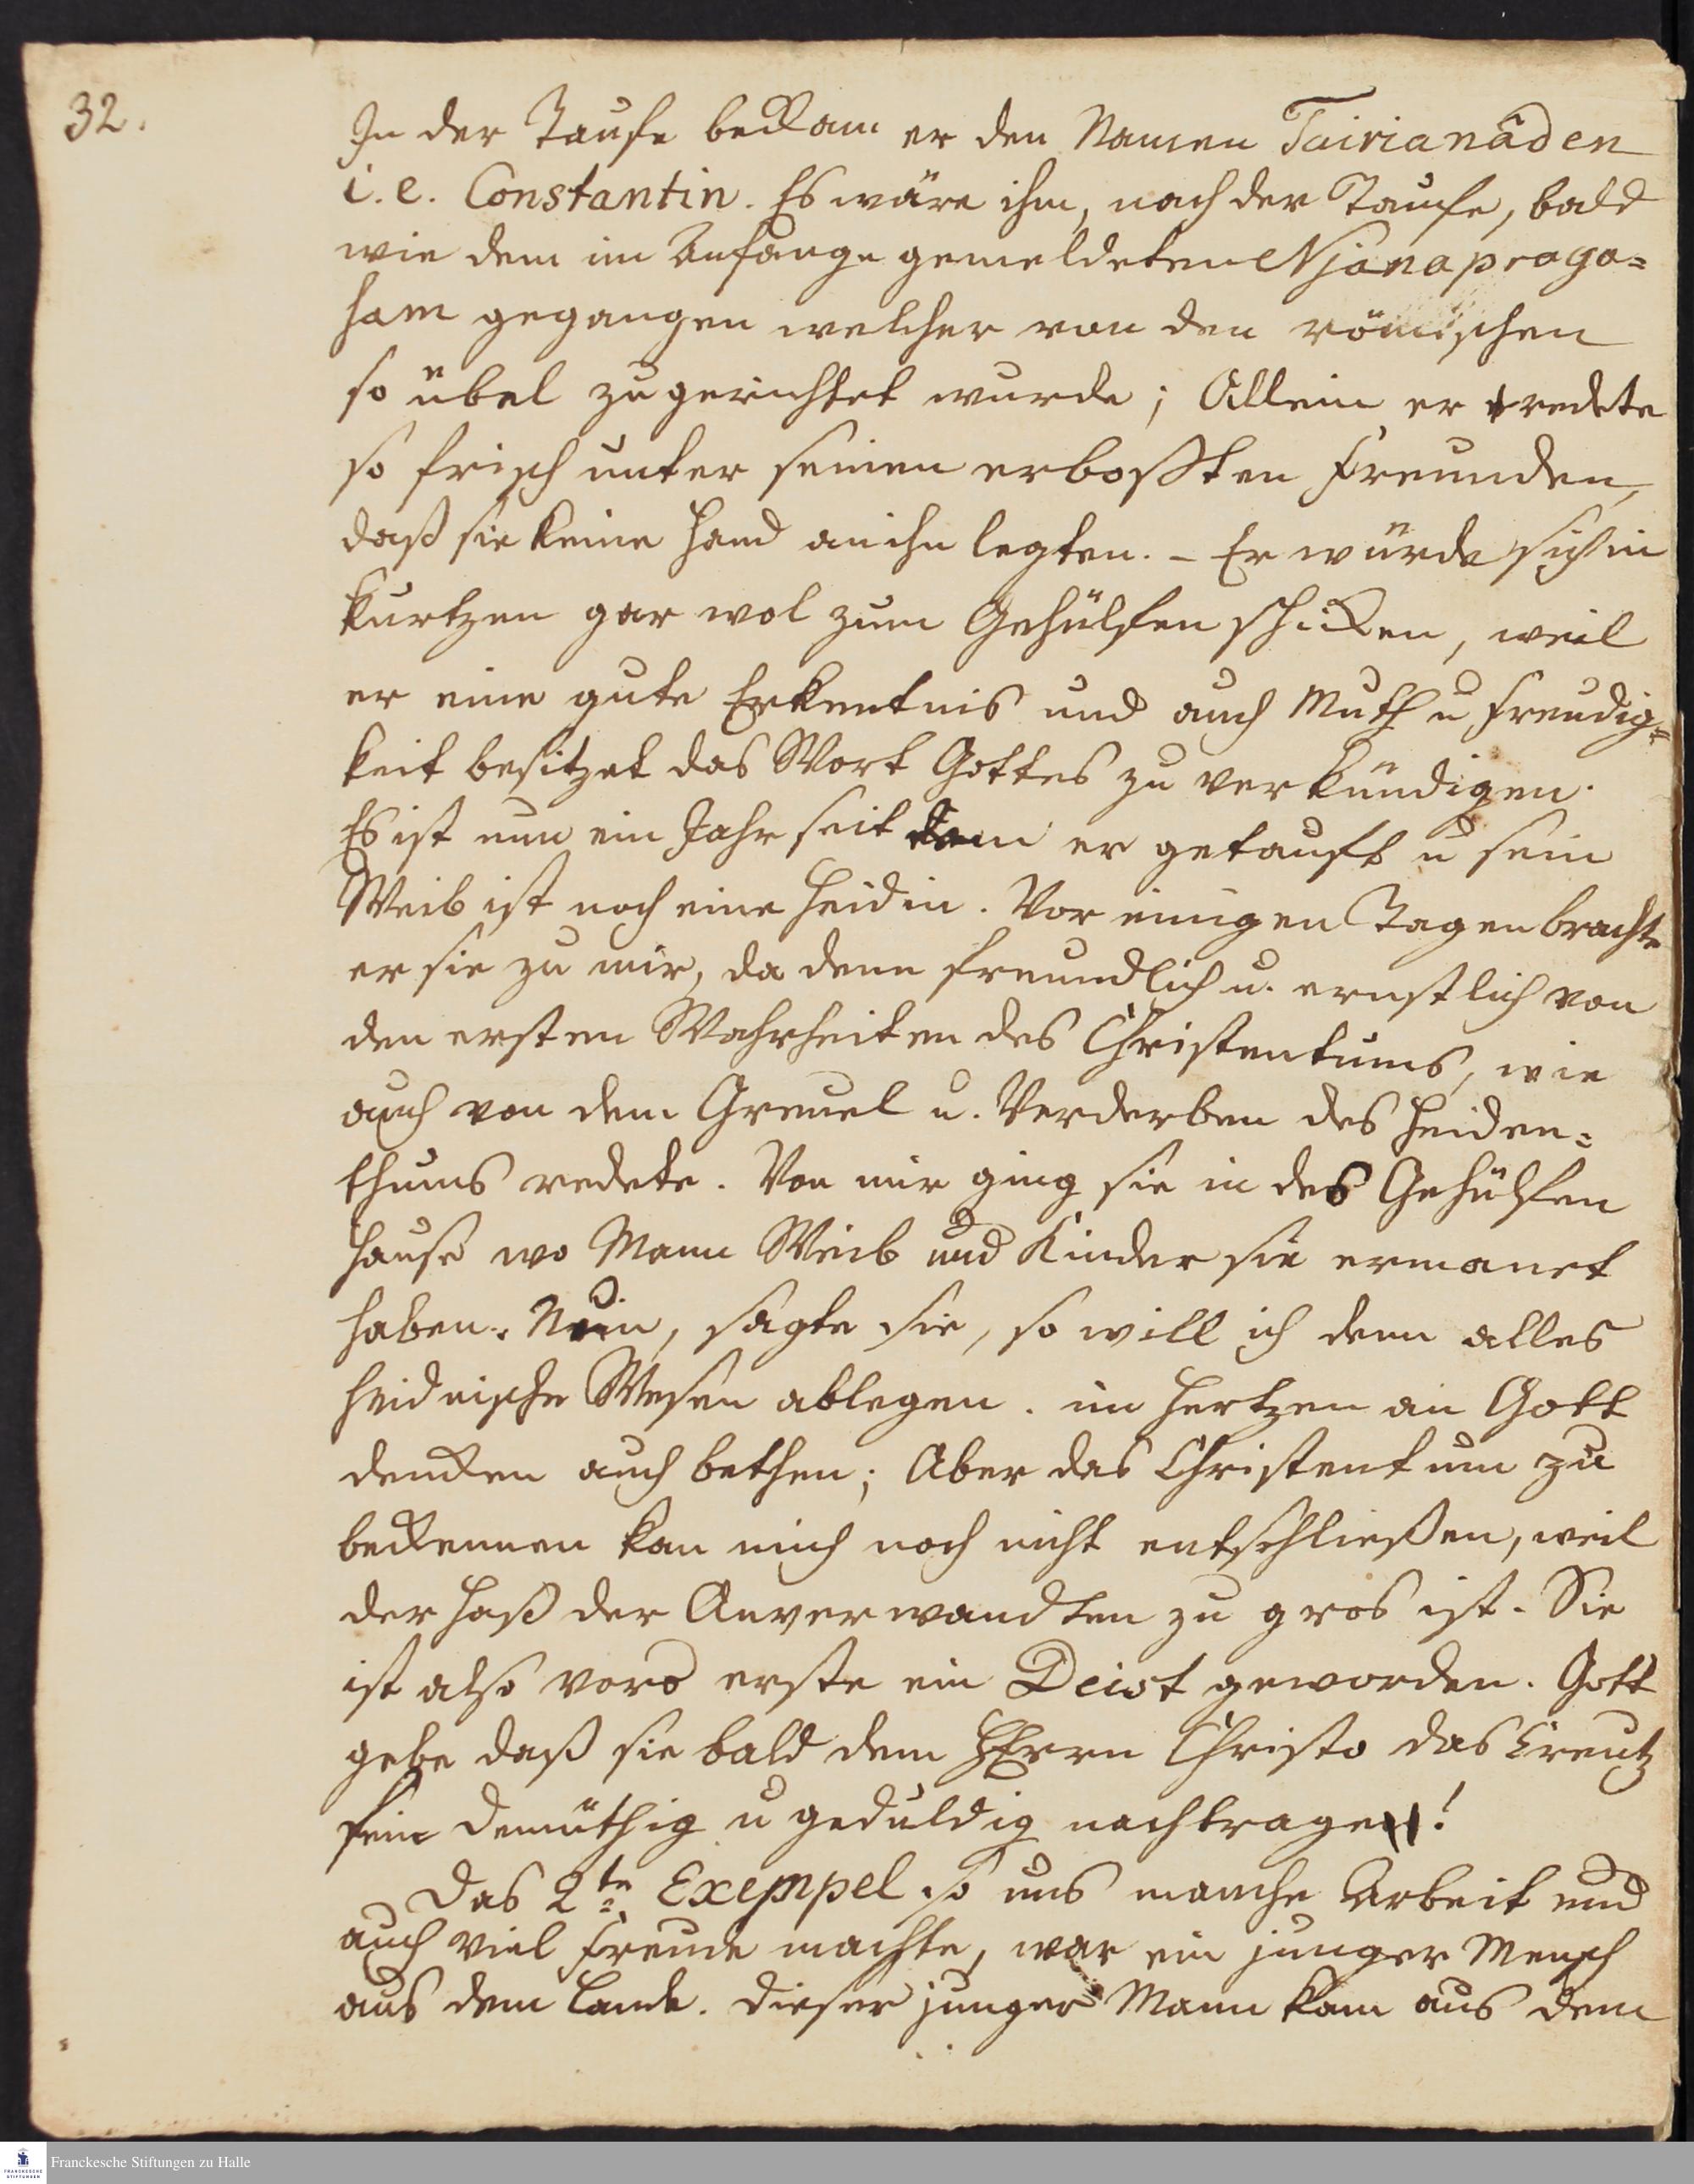 32.
In der Taufe bekam er den Namen Tairianâden
i.e. Constantin. Es wäre ihm, nach der Taufe, bald
wie dem im Anfange gemeldeten Njanapraga=
sam gegangen welcher von den römischen
so übel zugerichtet wurde; Allein er redete
so frisch unter seinen erbosten Freunden,
daß sie keine Hand an ihn legten. – Er würde sich in
kurtzen gar wol zum Gehülfen schicken, weil
er eine gute Erkentnis und auch Muth u Freudig=
keit besitzet das Wort Gottes zu verkündigen.
Es ist nun ein Jahr seit dem er getauft u sein
Weib ist noch eine Heidin. Vor einigen Tagen brachte
er sie zu mir, da denn freundlich u. ernstlich von
den ersten Wahrheiten des Christentums, wie
auch von dem Greuel u. Verderben des Heiden=
thums redete. Von mir ging sie in des Gehülfen
Hause wo Mann Weib und Kinder sie ermanet
haben. Nun, sagte sie, so will ich denn alles
heidnische Wesen ablegen. im Hertzen an Gott
dencken auch bethen; Aber das Christentum zu
bekennen kan mich noch nicht entschließen, weil
der Haß der Anverwandten zu gros ist. Sie
ist also vors erste ein Deist geworden. Gott
gebe daß sie bald dem HErrn Christo das Creutz
fein demüthig u geduldig nachtrage!
Das 2te Exempel so uns manche Arbeit und
auch viel Freude machte, war ein junger Mensch
aus dem Lande. Dieser junger Mann kam aus dem
FRANCKESCHE
STIFTUNGEN
Franckesche Stiftungen zu Halle